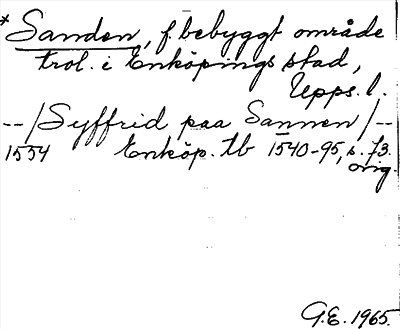 *Sanden, f. bebyggt område
trol. i Enköpings stad,
Upps. l.
--/Syffrid paa Sannen/--
1554 Enköp. tb 1540-95, s. 73.
orig.
G.E. 1965.